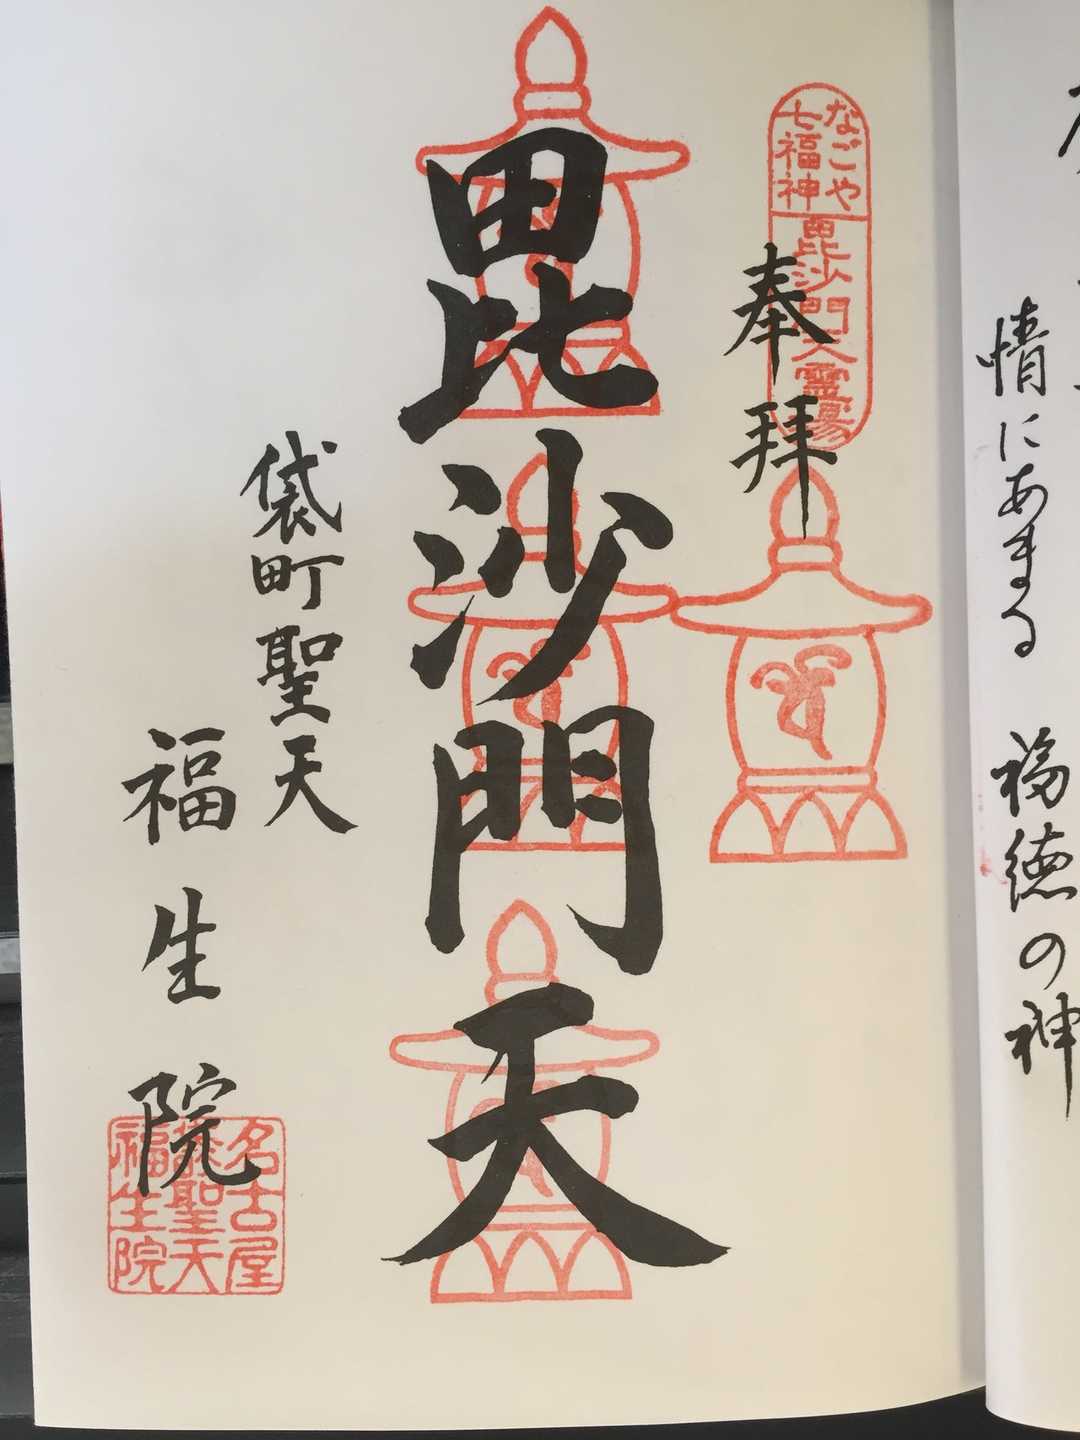 情にあまる 福徳の神
なごや
七福神
毘沙門天霊場
奉拝
毘沙門天
袋町聖天
福生院
名古屋
袋聖天
福生院